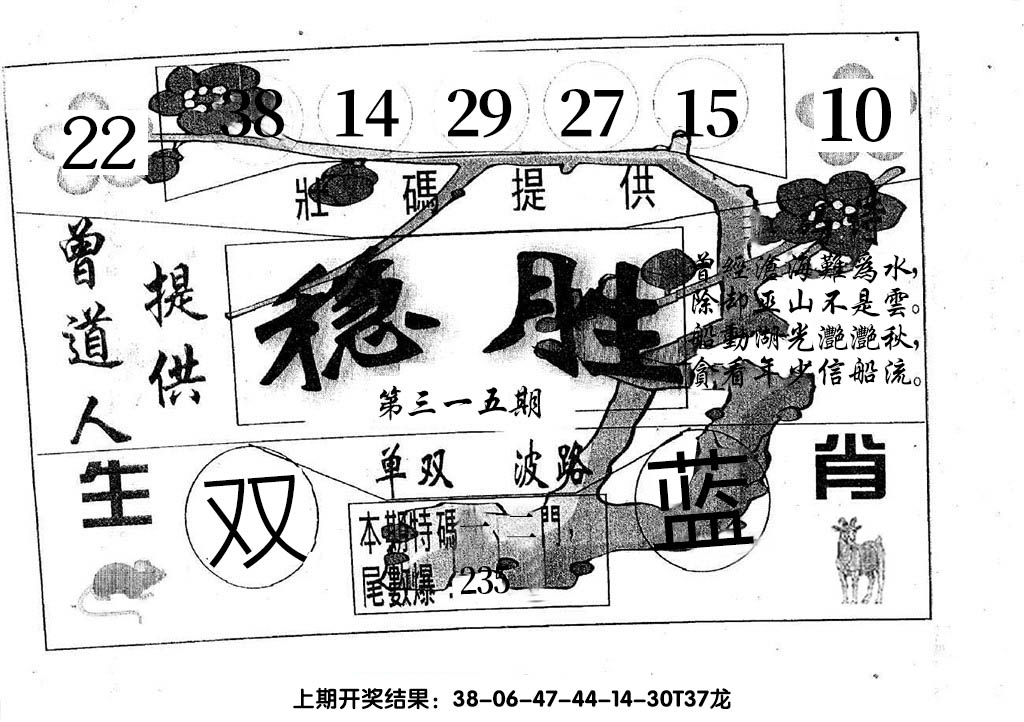 22 38 14 29 27 15 10
壯碼提供
曾道人
提供
稳胜
第三一五期
曾經滄海難為水，
除却巫山不是雲。
船動湖光灧灧秋，
貪看年少信船流。
生
双
单双 波路
蓝
肖
本期特碼一、二門，
尾數爆：235
上期开奖结果：38-06-47-44-14-30T37龙